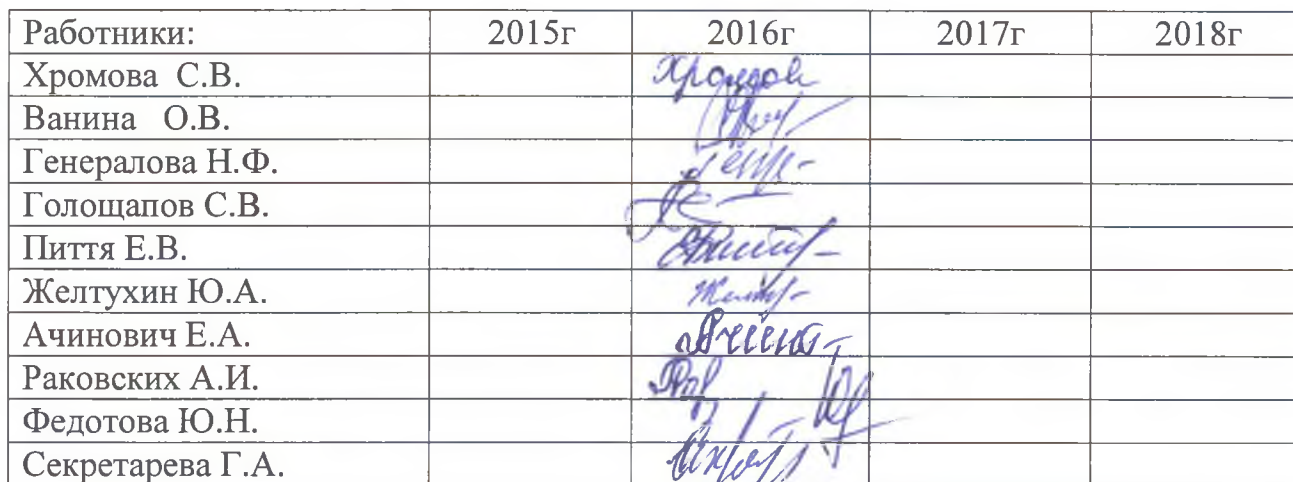 Работники: 2015г 2016г 2017г 2018г
Хромова С.В. Хромов
Ванина О.В.
Генералова Н.Ф.
Голощапов С.В.
Пиття Е.В.
Желтухин Ю.А.
Ачинович Е.А.
Раковских А.И.
Федотова Ю.Н.
Секретарева Г.А.